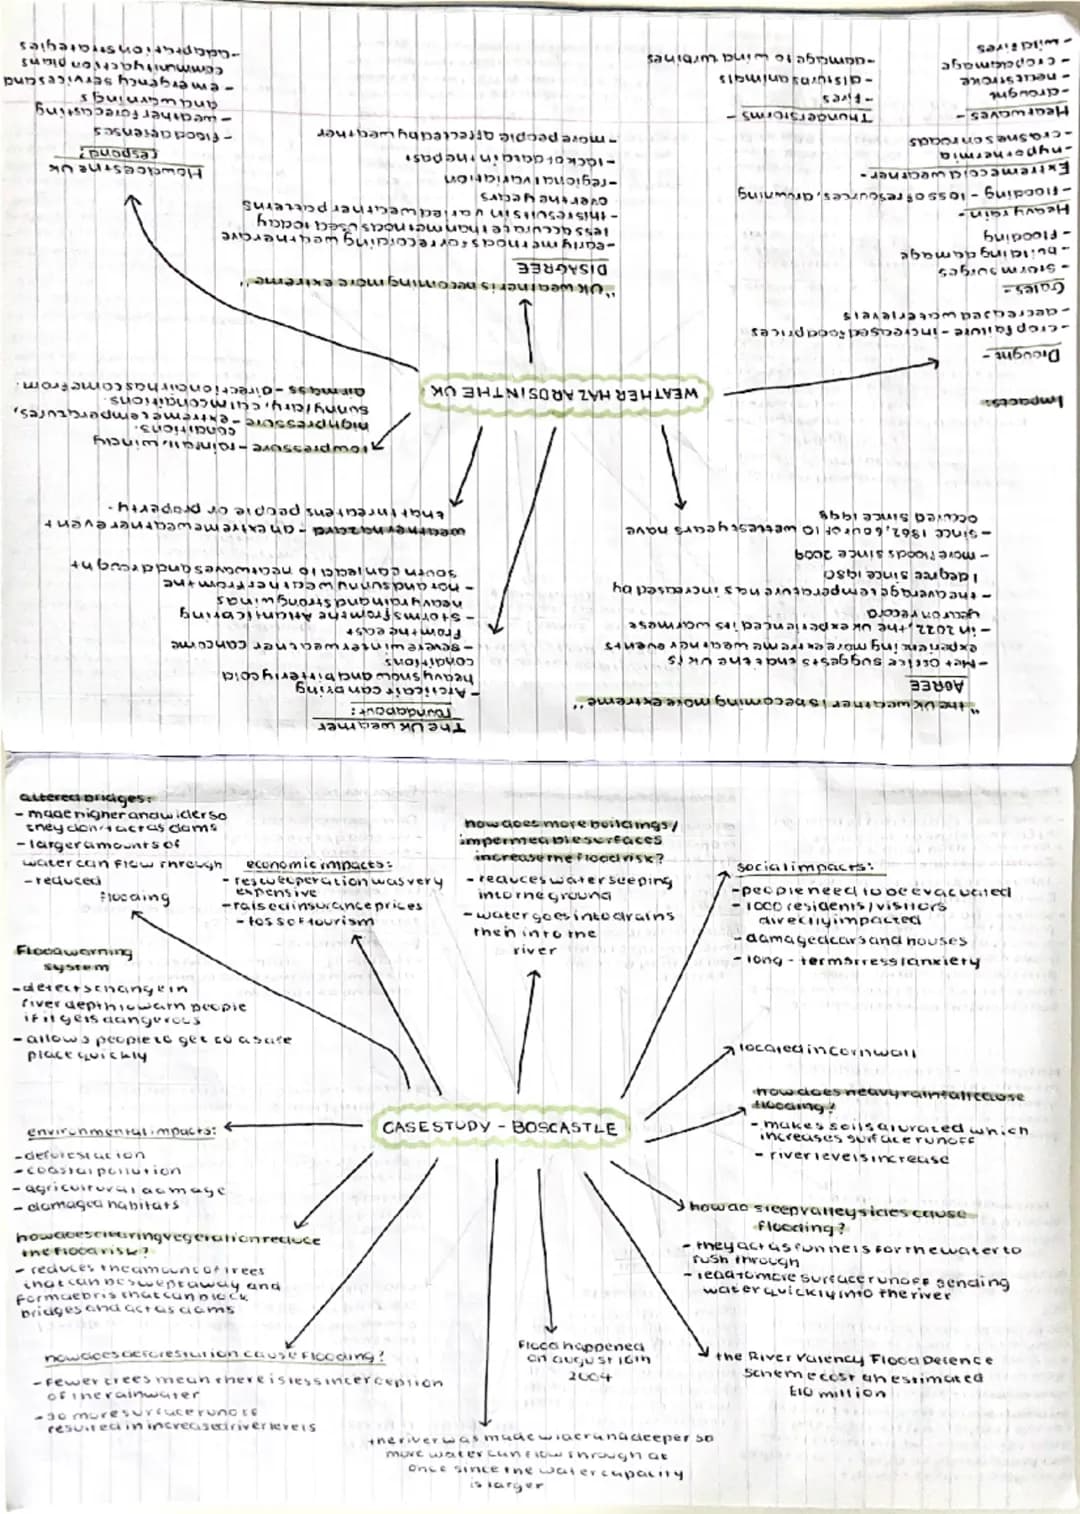 "the UK weather is becoming more extreme"
AGREE
- Met Office suggests that the UK is
experiencing more extreme weather events
- in 2022, the UK experienced its warmest
year on record
- the average temperature has increased by
1 degree since 1980
- more floods since 2009
- since 1862, 6 out of 10 wettest years have
occured since 1998
The UK weather
roundabout:
- Arctic air can bring
heavy snow and bitterly cold
conditions
- severe winter weather can come
from the east
- Storms from the Atlantic bring
heavy rain and strong winds
- hot and sunny weather from the
south can lead to heatwaves and drought
weather hazard - an extreme weather event
that threatens people or property.
low pressure - rainfall, windy
conditions.
high pressure - extreme temperatures,
sunny/dry, calm conditions.
air mass - direction air has come from.
WEATHER HAZARDS IN THE UK
Impacts:
Drought -
- crop failure - increased food prices
- decreased water levels
Gales -
- Storm surges
- building damage
- flooding
Heavy rain -
- flooding - loss of resources, drowning
Extreme cold weather -
- hypothermia
- crashes on roads
Heatwaves -
- drought
- heatstroke
- crop damage
- wildfires
Thunderstorms -
- fires
- disturbs animals
- damage to wind turbines
"UK weather is becoming more extreme"
DISAGREE
- early methods for recording weather are
less accurate than methods used today
- this results in varied weather patterns
over the years
- regional variation
- lack of data in the past
- more people affected by weather
How does the UK
respond?
- flood defenses
- weather forecasting
and warnings
- emergency services and
community action plans
- adaptation strategies
altered bridges:
- made higher and wider so
they don't act as dams
- larger amounts of
water can flow through
- reduced
flooding
economic impacts:
- rescue operation was very
expensive
- raised insurance prices
- loss of tourism
how does more buildings/
impermeable surfaces
increase the flood risk?
- reduces water seeping
into the ground
- water goes into drains
then into the
river
social impacts:
- people need to be evacuated
- 1000 residents/visitors
directly impacted
- damaged cars and houses
- long-term stress/anxiety
Flood warning
system
- detects change in
river depth to warn people
if it gets dangerous
- allows people to get to a safe
place quickly
located in cornwall
how does heavy rainfall cause
flooding?
- makes soil saturated which
increases surface runoff
- river levels increase
CASE STUDY - BOSCASTLE
environmental impacts:
- deforestation
- coastal pollution
- agricultural damage
- damaged habitats
how does clearing vegetation reduce
the flood risk?
- reduces the amount of trees
that can be swept away and
form debris that can block
bridges and act as dams
how do steep valley sides cause
flooding?
- they act as funnels for the water to
rush through
- lead to more surface runoff sending
water quickly into the river
how does deforestation cause flooding?
- fewer trees mean there is less interception
of the rainwater
- so more surface runoff
resulted in increased river levels
Flood happened
on august 16th
2004
the River Valency Flood Defence
Scheme cost an estimated
£10 million
the river was made wider and deeper so
more water can flow through at
once since the water capacity
is larger